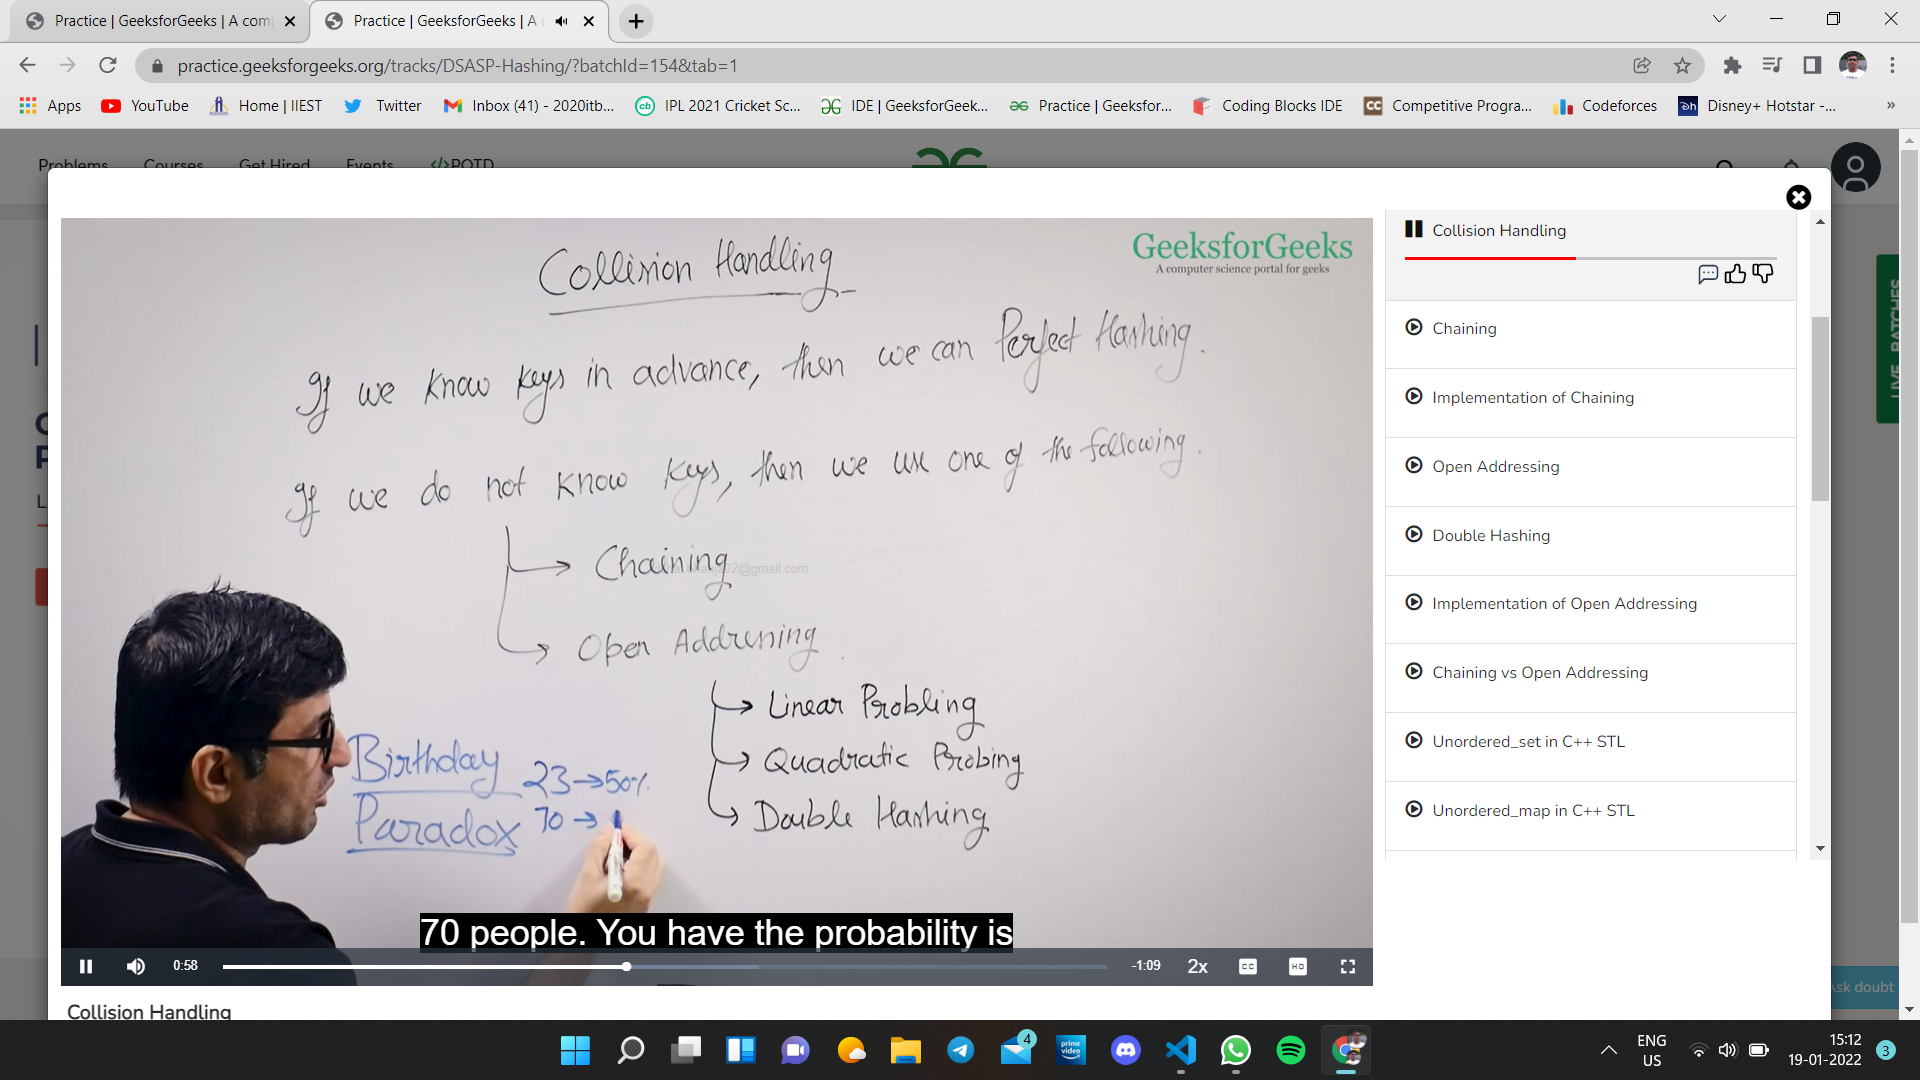 Practice | GeeksforGeeks | A com
Practice | GeeksforGeeks | A
practice.geeksforgeeks.org/tracks/DSASP-Hashing/?batchId=154&tab=1
Apps YouTube Home | IIEST Twitter Inbox (41) - 2020itb... IPL 2021 Cricket Sc... IDE | GeeksforGeek... Practice | Geeksfor... Coding Blocks IDE Competitive Progra... Codeforces Disney+ Hotstar -...
Problems Courses Get Hired Events POTD
GeeksforGeeks
A computer science portal for geeks
Collision Handling
If we know keys in advance, then we can Perfect Hashing.
If we do not know keys, then we use one of the following.
Chaining
Open Addressing
Linear Probling
Quadratic Probing
Double Hashing
Birthday
Paradox
23 → 50%
70 →
70 people. You have the probability is
0:58 -1:09 2x CC HD
Collision Handling
Collision Handling
Chaining
Implementation of Chaining
Open Addressing
Double Hashing
Implementation of Open Addressing
Chaining vs Open Addressing
Unordered_set in C++ STL
Unordered_map in C++ STL
LIVE BATCHES
Ask doubt
4
prime video
ENG
US
15:12
19-01-2022
3